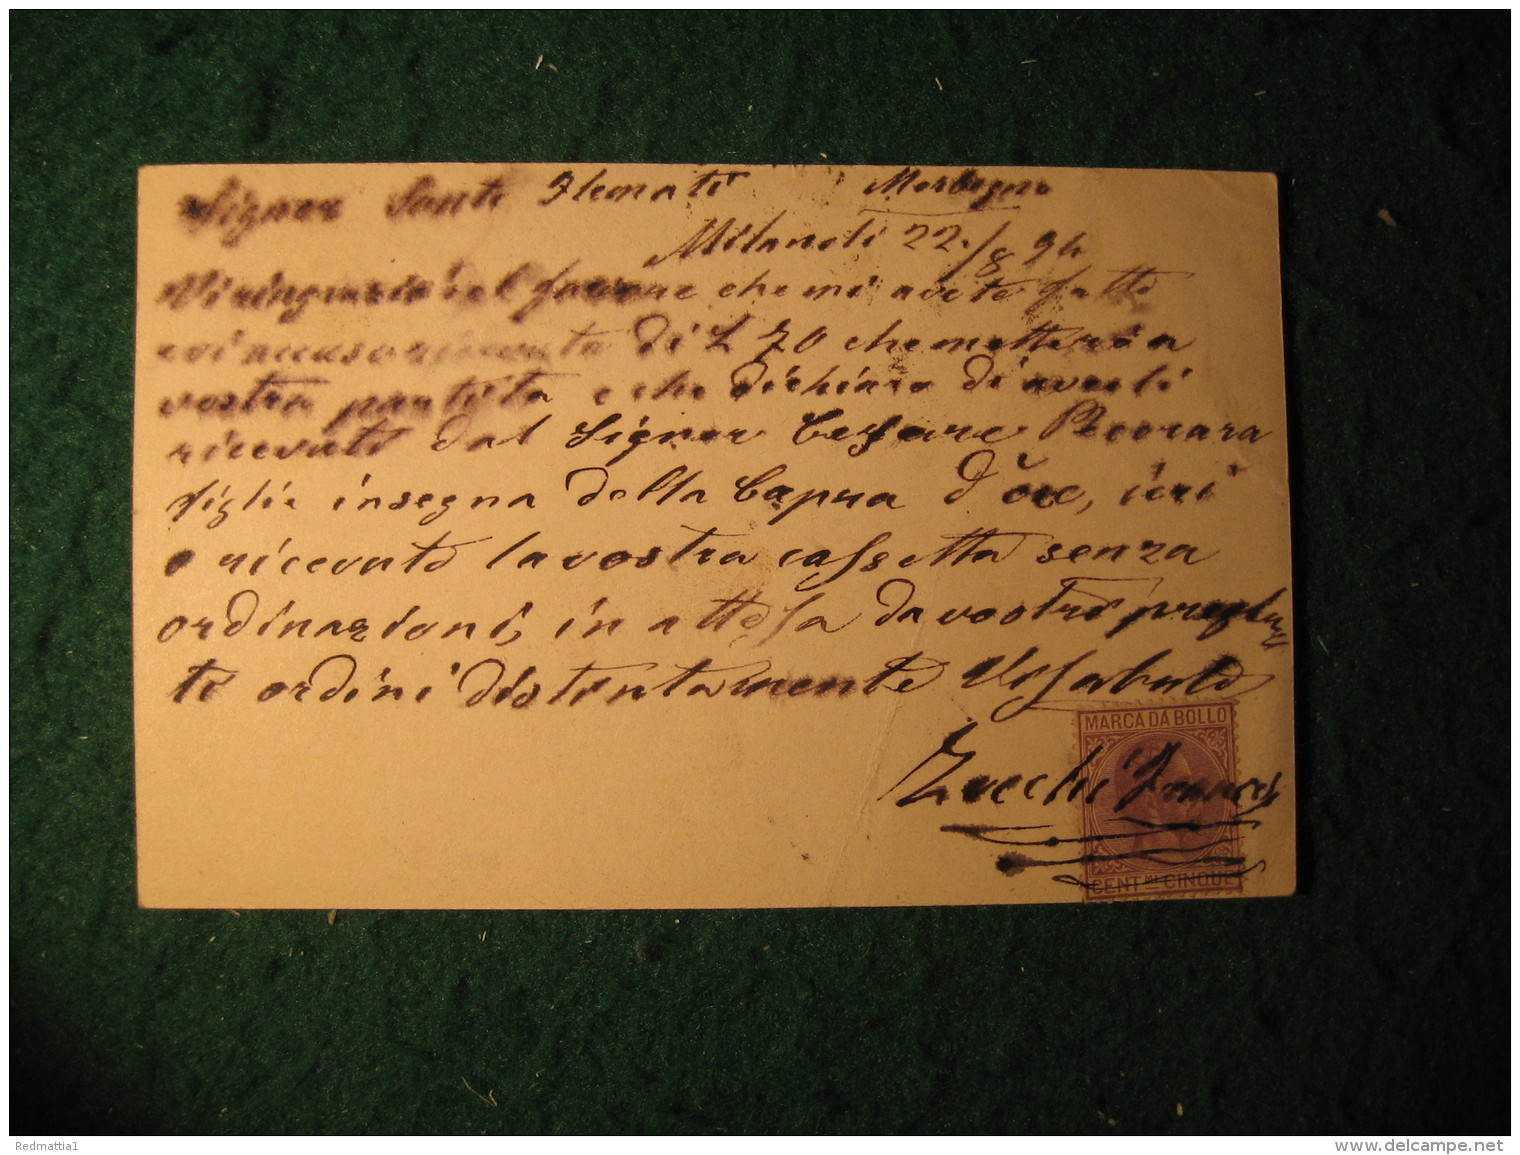 Signor Santi Morbegno
Milano li 22./8 94
Vi ringrazio del favore che mi avete fatto
e vi accuso ricevuta di L 70 che metterò a
vostra partita e che dichiaro di averli
ricevuti dal Signor Cesare Pecorara
figlio insegna della Capra d'ore, ieri
o ricevuto la vostra cassetta senza
ordinazioni, in attesa da vostri pregia
ti ordini distintamente Vi saluto
Zucchi Franc
MARCA DA BOLLO
CENT.MI CINQUE
Redmattia1
www.delcampe.net